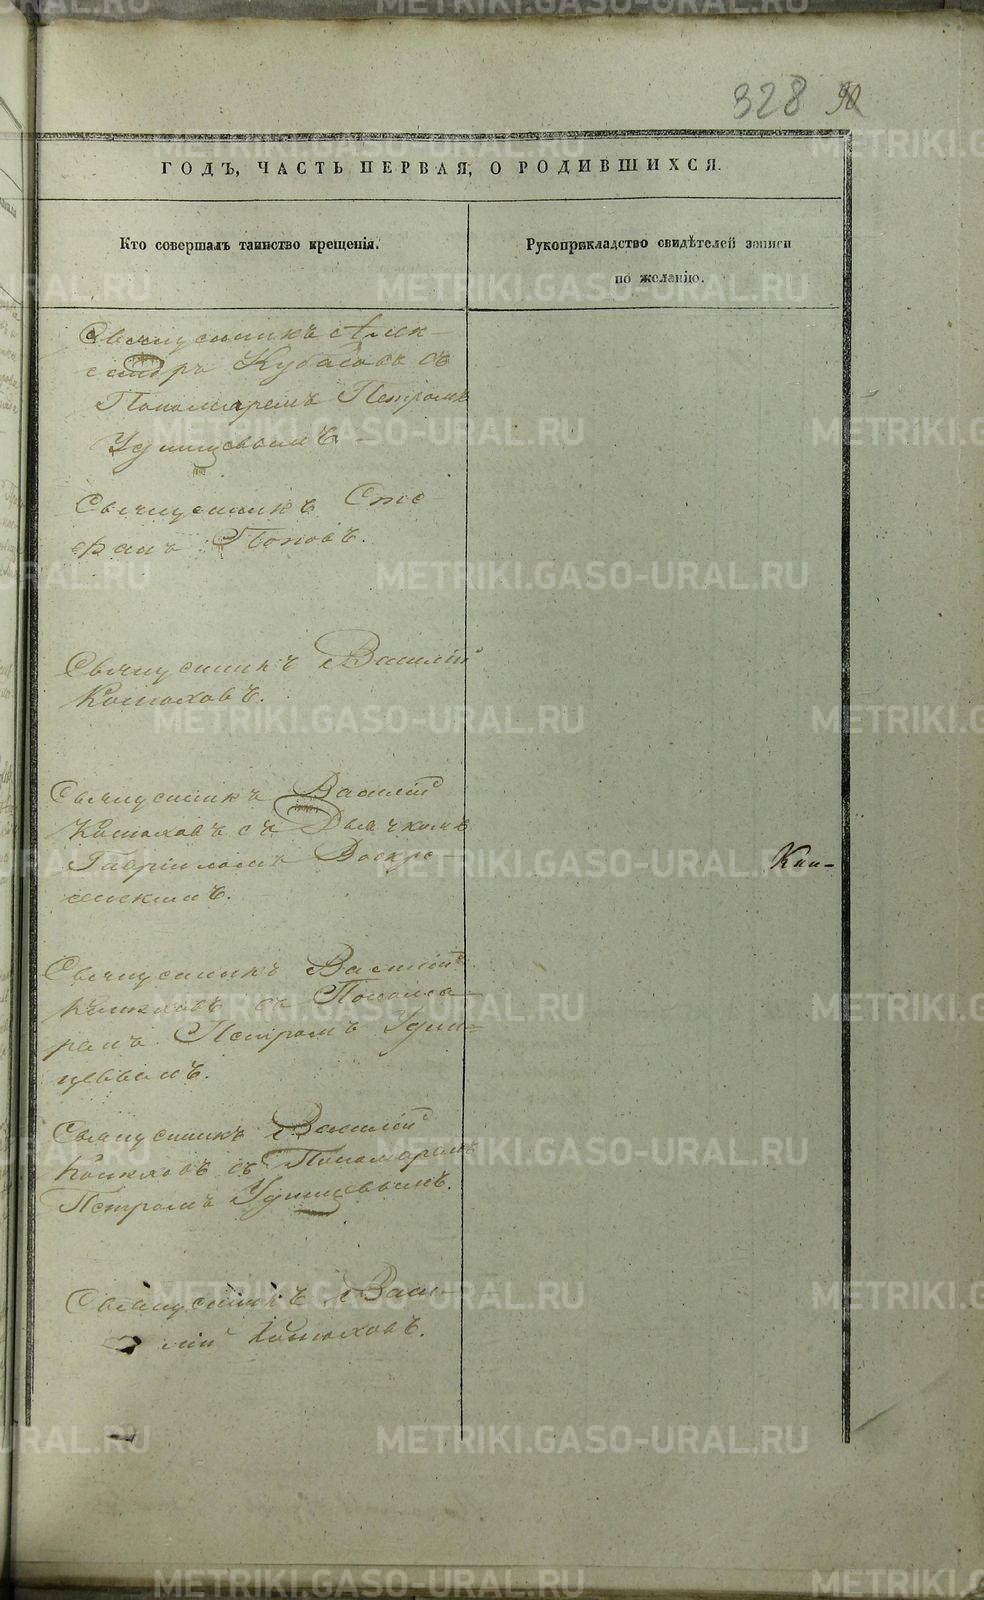 328 90
ГОДЪ, ЧАСТЬ ПЕРВАЯ, О РОДИВШИХСЯ.
Кто совершалъ таинство крещенія.
Рукоприкладство свидѣтелей записи
по желанію.
Священникъ Алек-
сандръ Кубасовъ съ
Пономаремъ Петромъ
Удинцовымъ
Священникъ Сте
фанъ Поповъ.
Священникъ Василій
Конюховъ.
Священникъ Василій
Конюховъ съ Дьячкомъ
Гавріиломъ Воскре-
сенскимъ.
Кан-
Священникъ Василій
Конюховъ съ Понома-
ремъ Петромъ Удин-
цевымъ.
Священникъ Василій
Конюховъ съ Пономаремъ
Петромъ Удинцевымъ.
Священникъ Васи-
лій Конюховъ.
METRIKI.GASO-URAL.RU